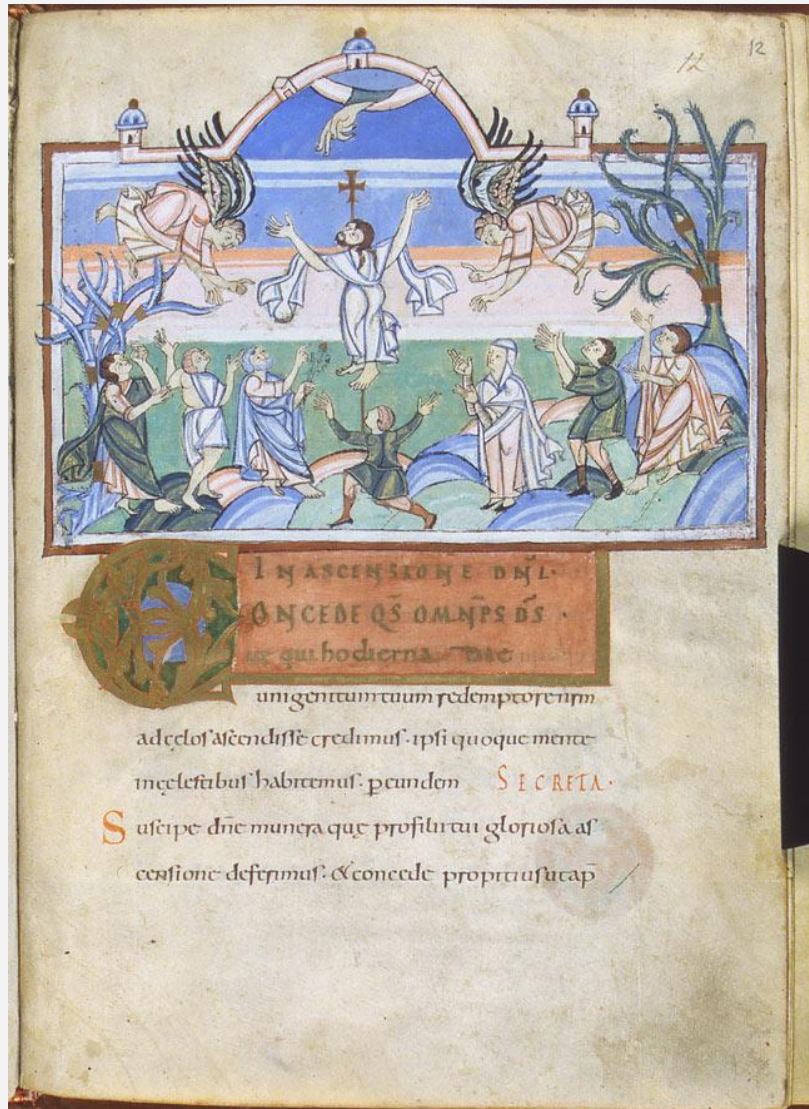 12 12
IN ASCENSIONE DN̄I·
CONCEDE QS̄ OMN̄PS D̄S·
ut qui hodierna die
unigenitum tuum redemptorem nr̄m
ad cęlos ascendisse credimus· ipsi quoque mente
in cęlestibus habitemus· ꝑ eundem SECRETA·
Suscipe dn̄e munera quę pro filii tui gloriosa as
censione deferimus· & concede propitius ut a p̄